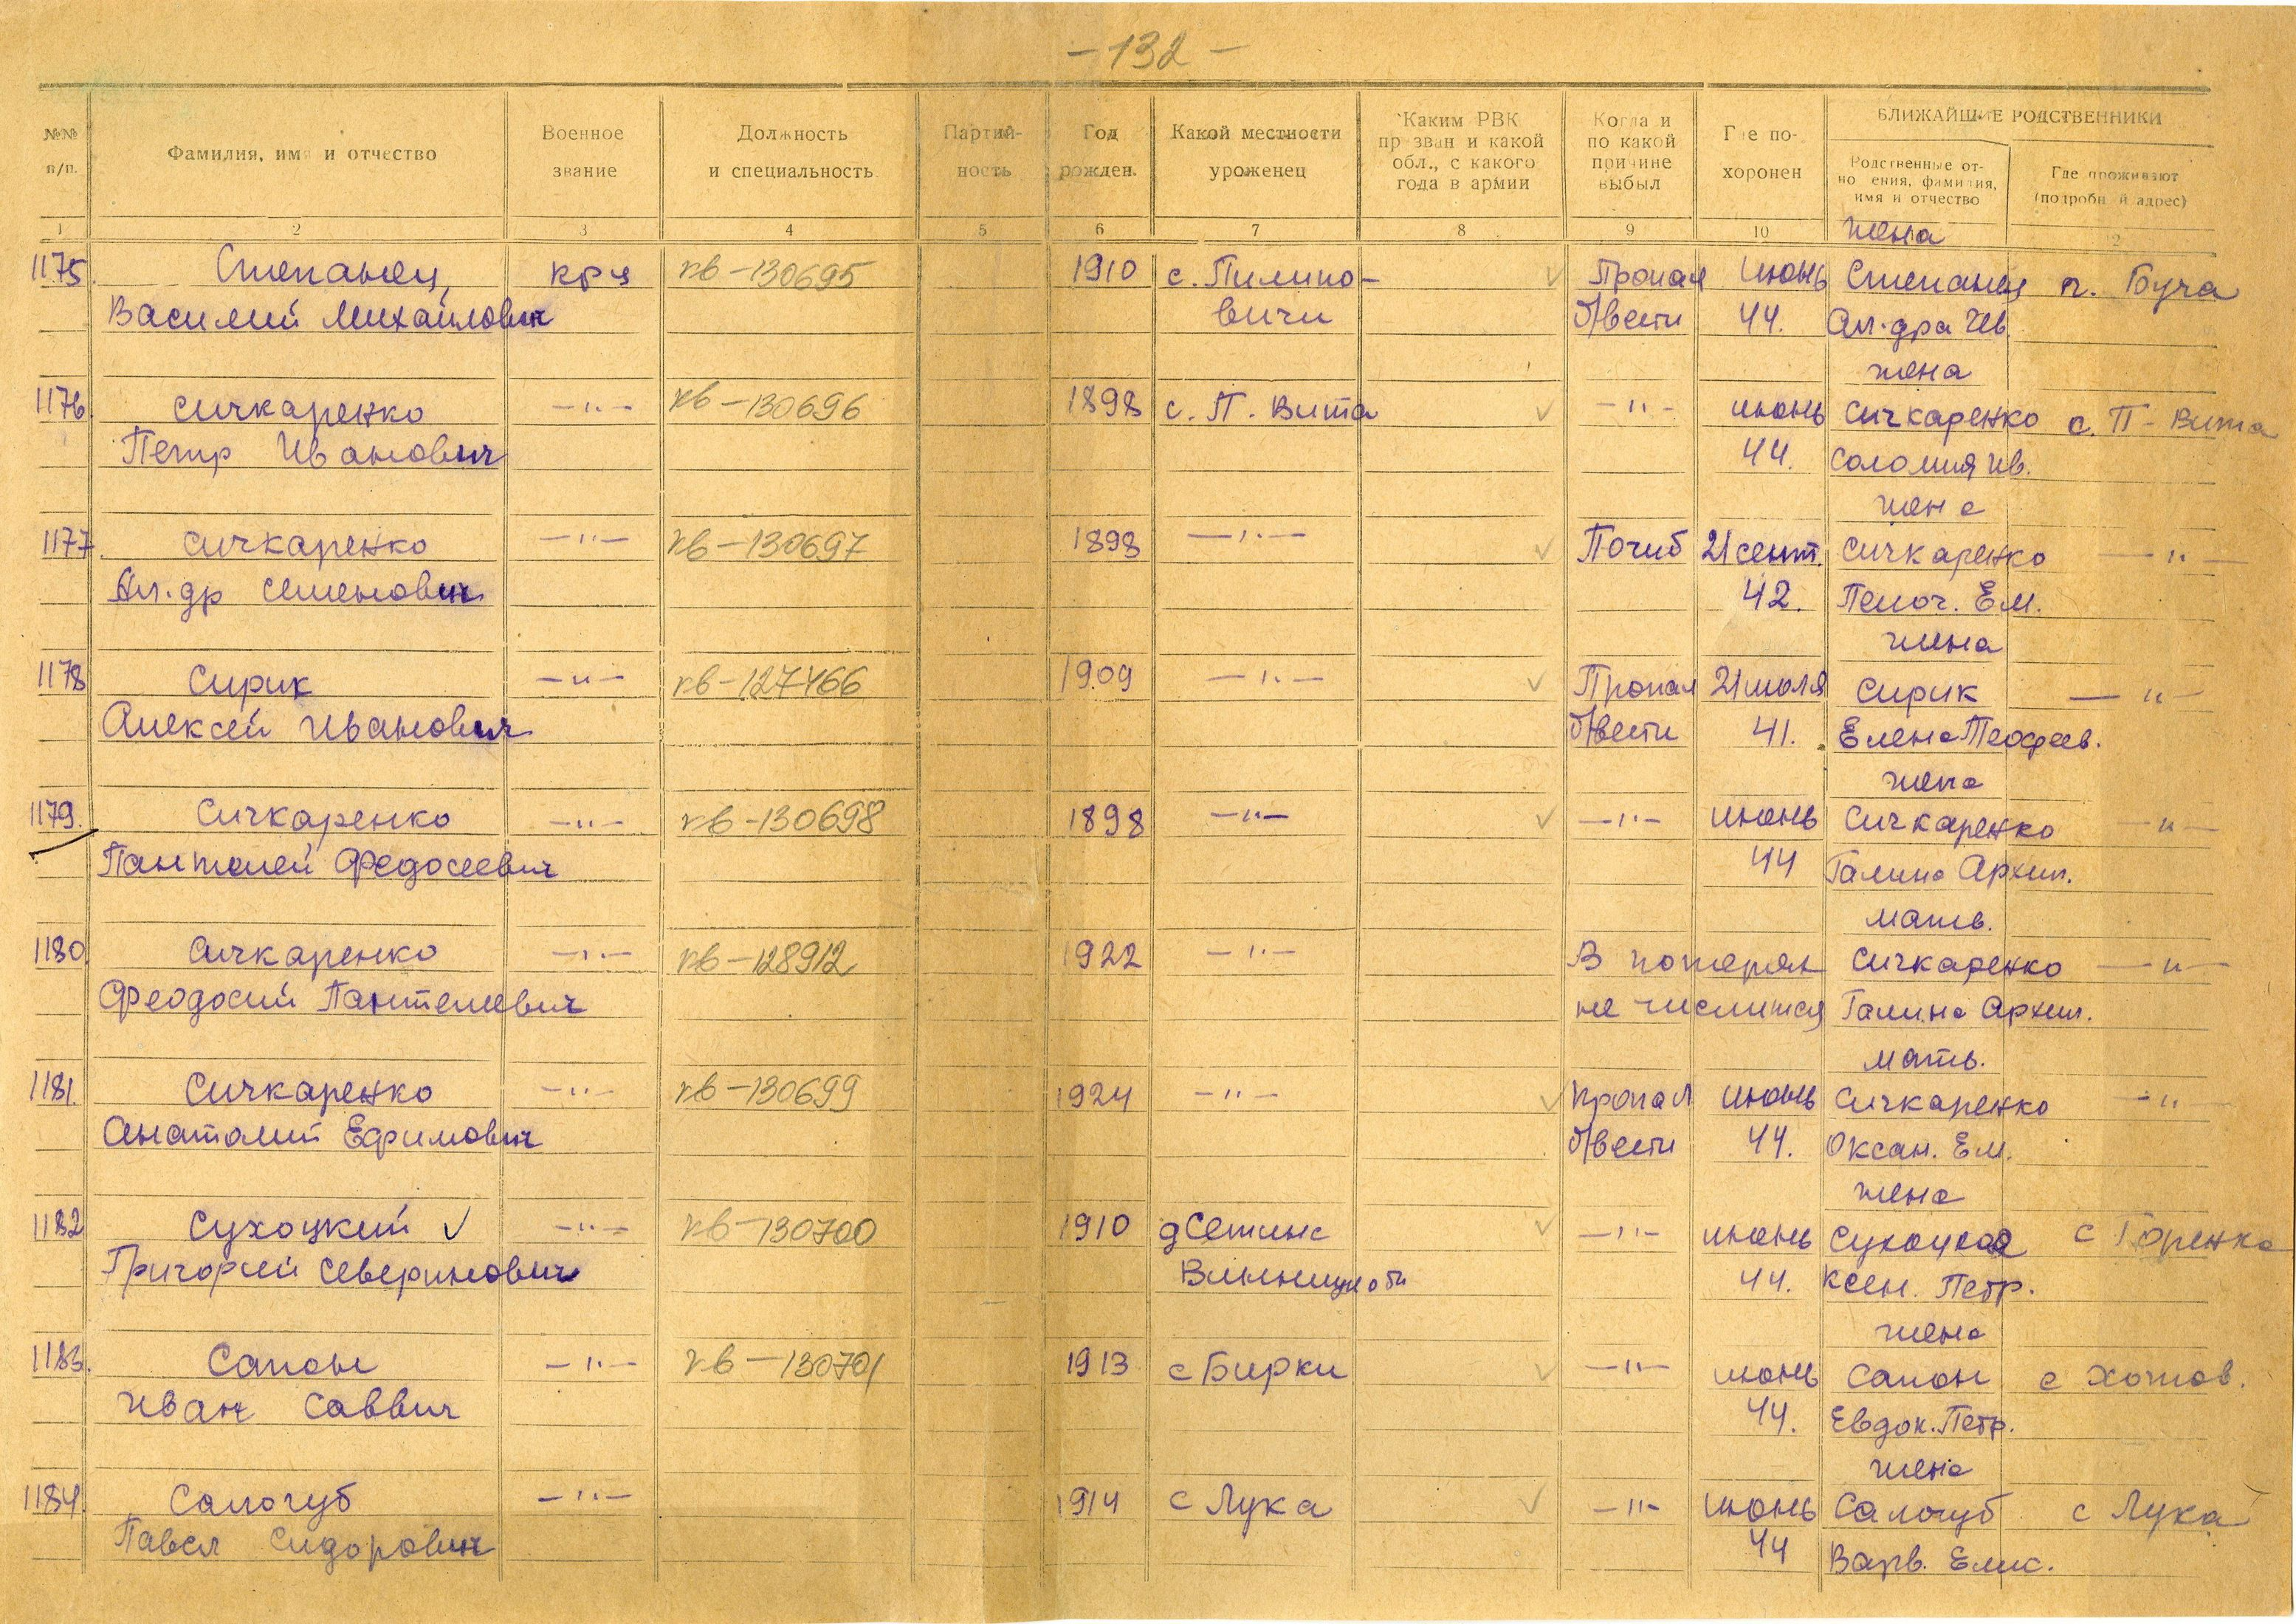 -132-
№№ п/п.
Фамилия, имя и отчество
Военное звание
Должность и специальность
Партий-ность
Год рожден.
Какой местности уроженец
Каким РВК призван и какой обл., с какого года в армии
Когда и по какой причине выбыл
Где по-хоронен
БЛИЖАЙШИЕ РОДСТВЕННИКИ
Родственные от-ношения, фамилия, имя и отчество
Где проживают (подробный адрес)
1 2 3 4 5 6 7 8 9 10 12
жена
1175. Степанец, крц кв-130695 1910 с. Пилипо- Пропал июнь Степанец п. Буча
Василий Михайлович вичи б/вести 44. Ал-дра Ив.
жена
1176 Сичкаренко -"- кв-130696 1898 с. П. Вита -"- июнь Сичкаренко с. П-Вита
Петр Иванович 44. Соломия Ив.
жена
1177. Сичкаренко -"- кв-130697 1898 -"- Погиб 21 сент. Сичкаренко -"-
Ал.др Семенович 42. Ем.
жена
1178 Сирик -"- кв-127466 1909 -"- Пропал 21 июля Сирик -"-
Алексей Иванович б/вести 41. Елена
жена
1179. Сичкаренко -"- кв-130698 1898 -"- -"- июнь Сичкаренко -"-
Пантелей Федосеевич 44 Галина Архип.
мать.
1180 Сичкаренко -"- кв-128912 1922 -"- В потерях Сичкаренко -"-
Феодосий Пантелеевич не числится Галина Архип.
мать.
1181. Сичкаренко -"- кв-130699 1924 -"- пропал июнь Сичкаренко -"-
Анатолий Ефимович б/вести 44. Оксан. Ем.
жена
1182 Сухоцкий ✓ -"- кв-130700 1910 -"- июнь Сухоцкая с Горенка
Григорий Северинович 44. Ксен. Петр.
жена
1183. Сапон -"- кв-130701 1913 с Бирки -"- июнь Сапон с Хотов.
Иван Саввич 44. Евдок. Петр.
жена
1184. Салогуб -"- 1914 с Лука -"- июнь Салогуб с Лука
Павел Сидорович 44 Варв. Елис.